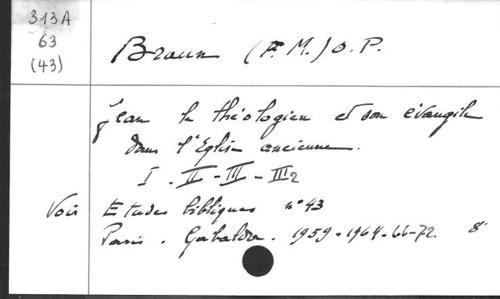 313A
63
(43)
Braun (F. M.) O. P.
Jean le théologien et son évangile
dans l'Eglise ancienne.
I - II - III - III2
Voir Etudes bibliques n° 43
Paris. Gabalda. 1959-1964-66-72. 8°